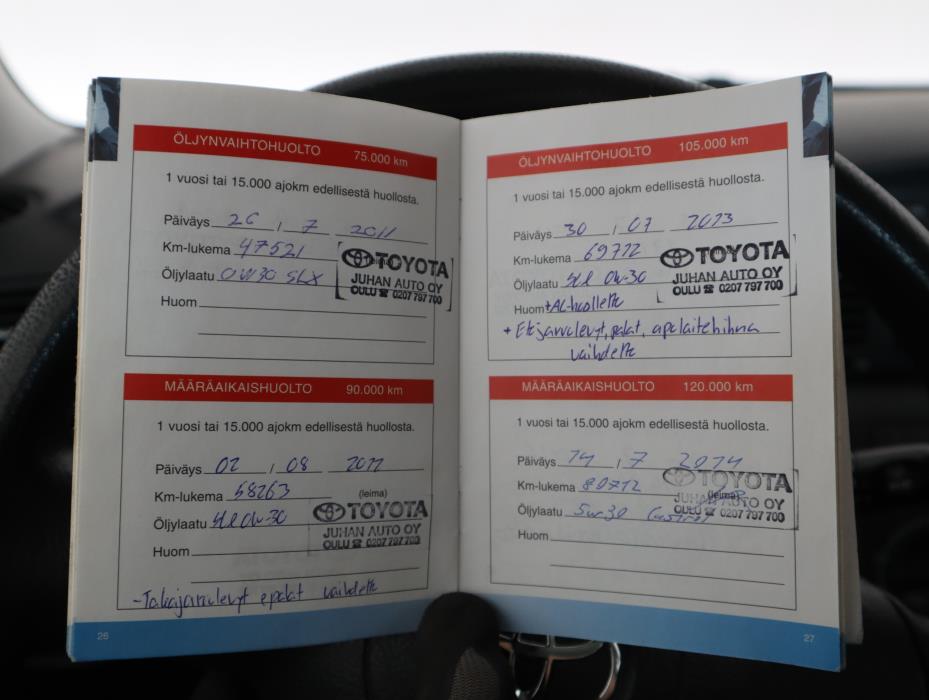 ÖLJYNVAIHTOHUOLTO 75.000 km
1 vuosi tai 15.000 ajokm edellisestä huollosta.
Päiväys 26 / 7 2011
Km-lukema 47521
Öljylaatu 0W30 SLX
TOYOTA
JUHAN AUTO OY
OULU ☎ 0207 797 700
Huom
MÄÄRÄAIKAISHUOLTO 90.000 km
1 vuosi tai 15.000 ajokm edellisestä huollosta.
Päiväys 02 / 08 2012
Km-lukema 58263
(leima)
Öljylaatu 0w-30
TOYOTA
JUHAN AUTO OY
OULU ☎ 0207 797 700
Huom
-Takajarrulevyt epalat vaihdettu
26
ÖLJYNVAIHTOHUOLTO 105.000 km
1 vuosi tai 15.000 ajokm edellisestä huollosta.
Päiväys 30 / 07 2013
Km-lukema 69772
Öljylaatu 0w-30
TOYOTA
JUHAN AUTO OY
OULU ☎ 0207 797 700
Huom +AC-huollettu
+ Etujarrulevyt, palat, apulaitehihna
vaihdettu
MÄÄRÄAIKAISHUOLTO 120.000 km
1 vuosi tai 15.000 ajokm edellisestä huollosta.
Päiväys 14 / 7 2014
Km-lukema 80712
(leima)
Öljylaatu 5w30 Castrol
TOYOTA
JUHAN AUTO OY
OULU ☎ 0207 797 700
Huom
27